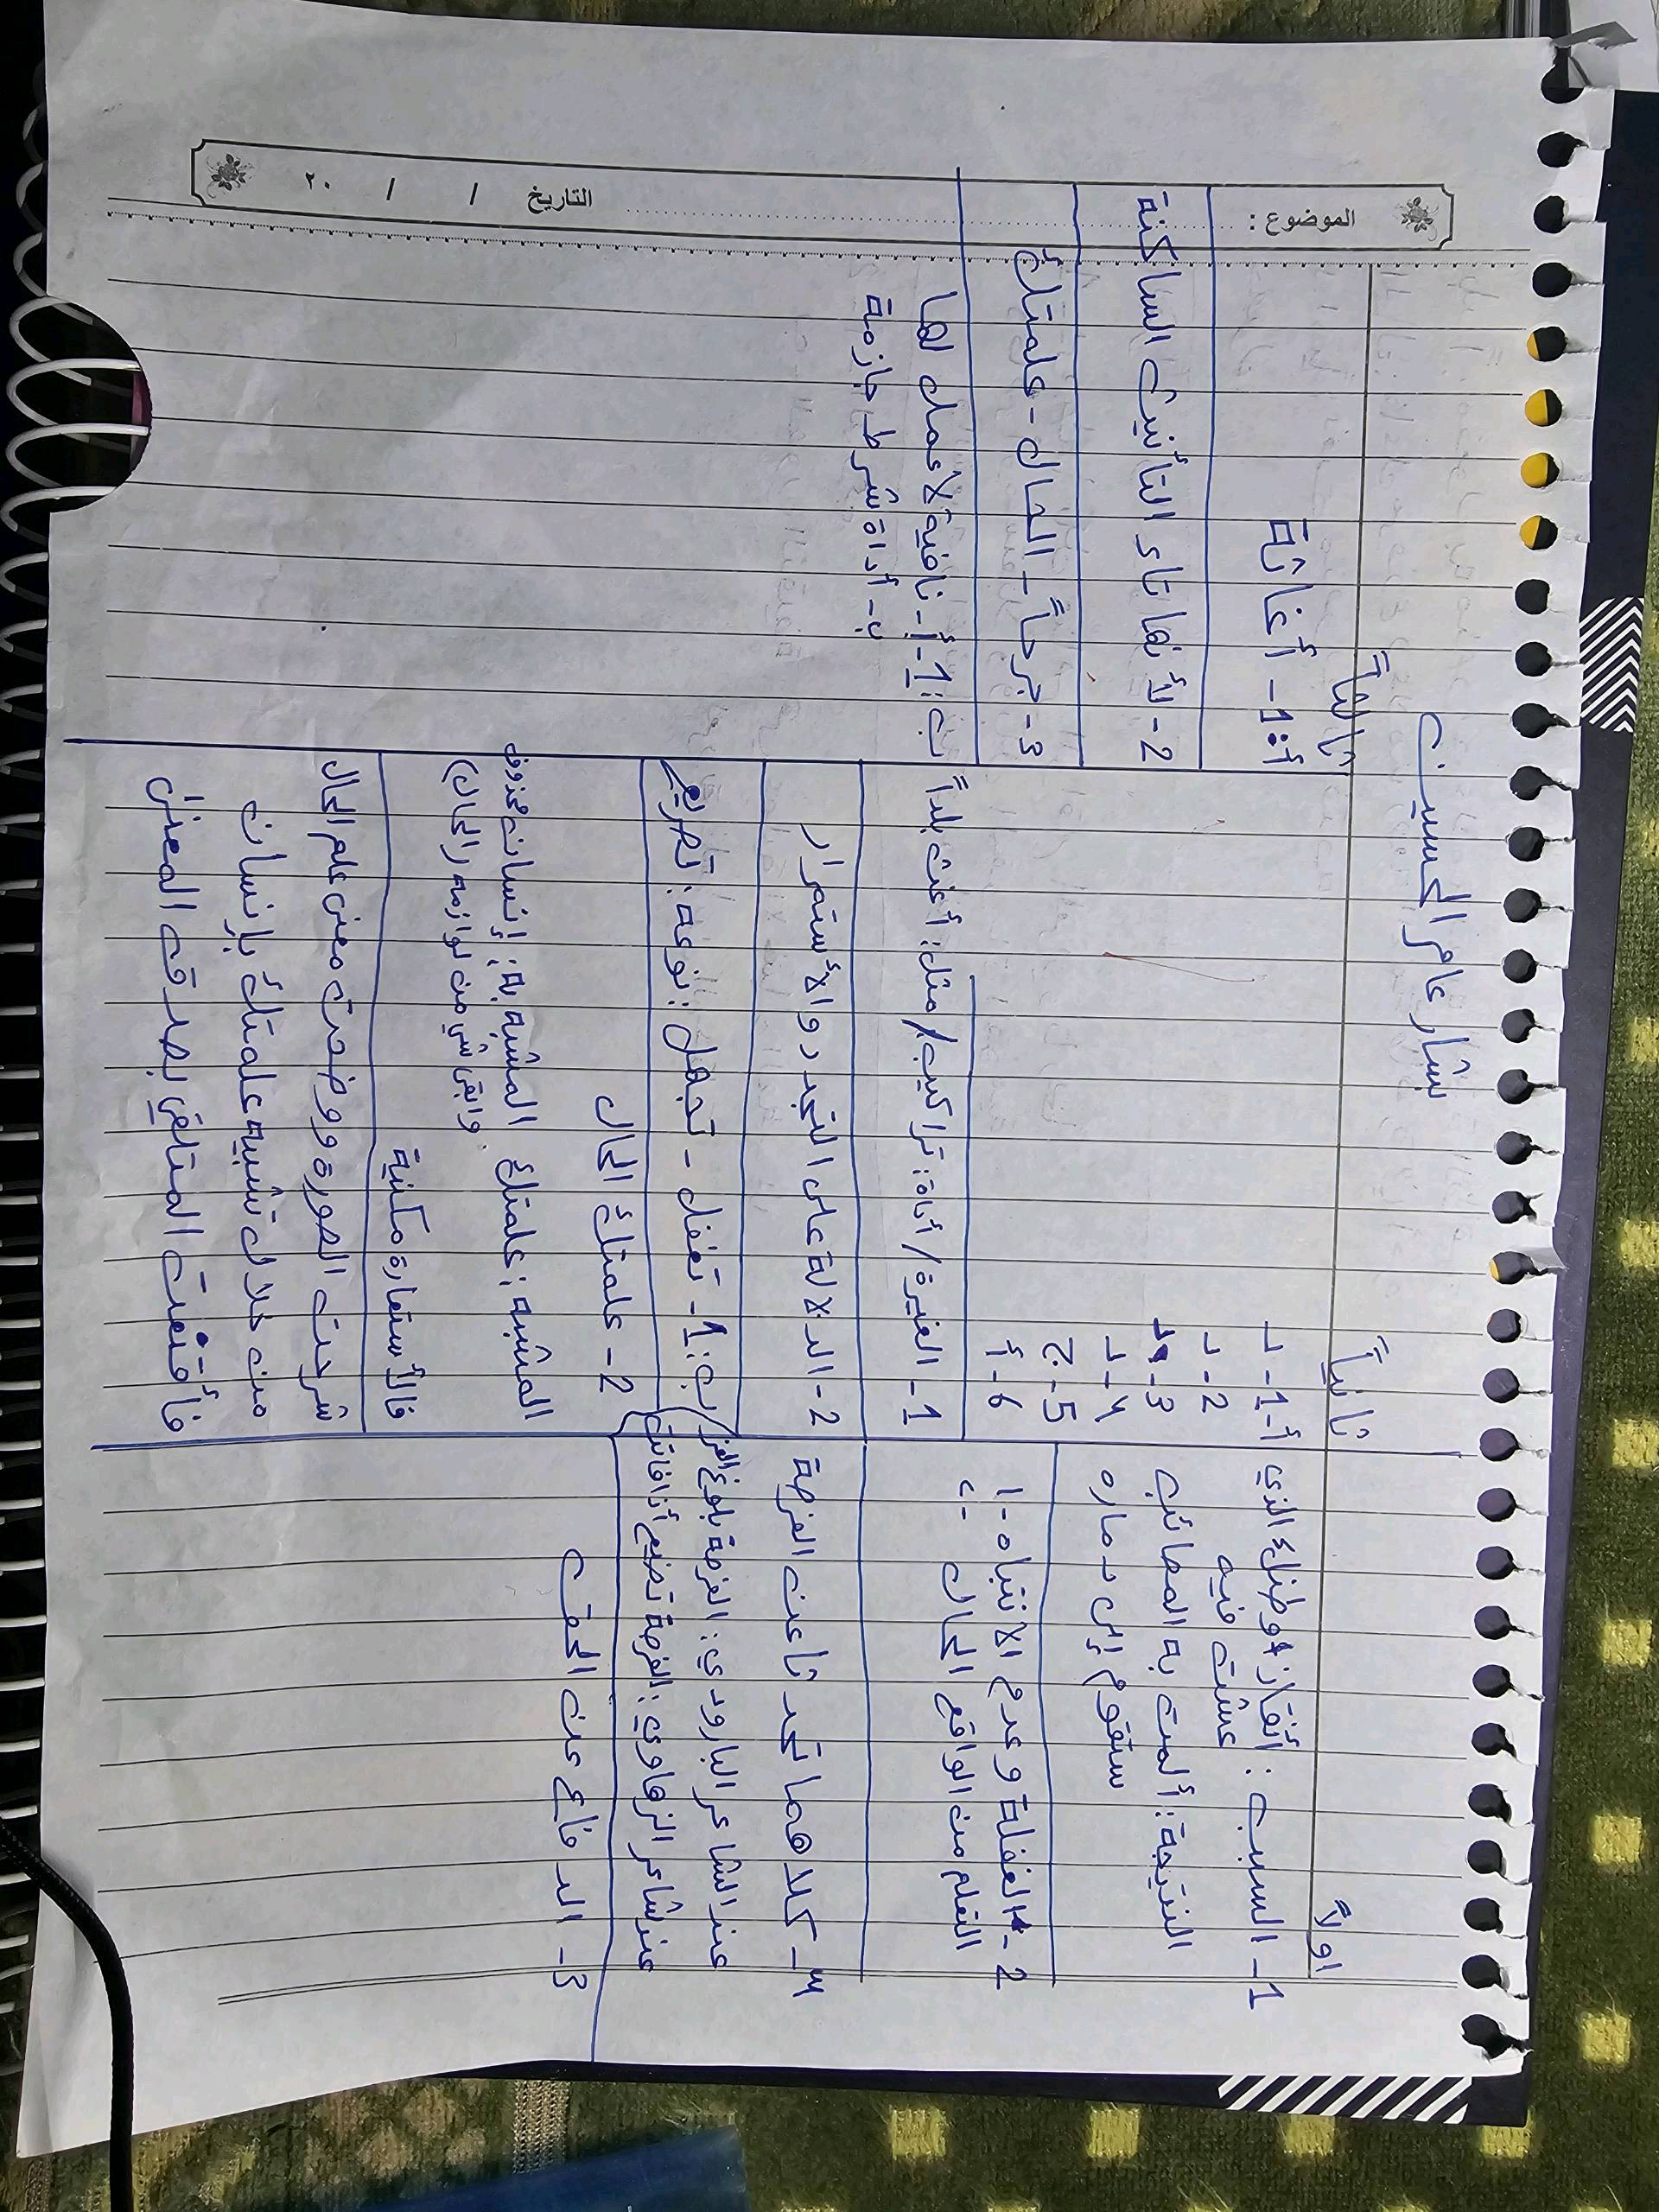 الموضوع : التاريخ / / ٢٠
بشار عامر الحسين
اولاً
1- السبب : انقاز وطنك الذي
عشت فيه
النتيجة : ألمت به المصائب
ستقوم إلى دماره
2- الغفلة وعدم الانتباه -١
التعلم من الواقع الحال -٢
٣- كلاهما تحدثا عن الفرصة
عند الشاعر البارودي : الفرصة بلوغ العز
عند شاعر الزهاوي : الفرصة تضيع أزا فاتت
3- الدفاع عن الحق
ثانياً
أ-1- د
2- د
3- د
٤- د
5- ج
6- أ
1- الغيرة / أداة : تراكيب / مثل : أغث بلداً
2- الدلالة على التجدد والأستمرار
ب : 1- تغفل - تجهل : نوعه : تصريع
2- علمتك الحال
المشبه : علمتك المشبه به : إنسان محذوف
وابقى شي من لوازمه (الحال)
فالأستعارة مكنية
شرحت الصورة ووضحت معنى علم الحال
من خلال تشبيه علمتك بإنسان
فأقنعت المتلقي بصدق المعنى
ثالثاً
أ : 1- أغاثة
2- لأنها تاء التأنيث الساكنة
3- جرحاً - الحال - علمتك
ب : 1- أ- نافية لا عمل لها
ب- أداة شرط جازمة